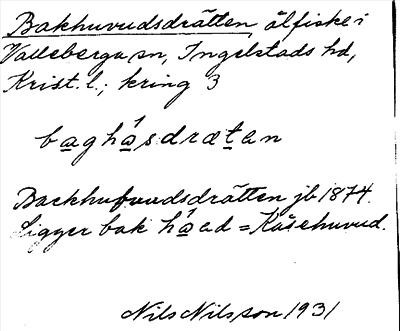 Bakhuvudsdrätten, ålfiske i
Valleberga sn, Ingelstads hd,
Krist. l.; kring 3
baghåsdrætan
Backhufvudsdrätten jb 1874.
Ligger bak håad = Kåsehuvud.
Nils Nilsson 1931